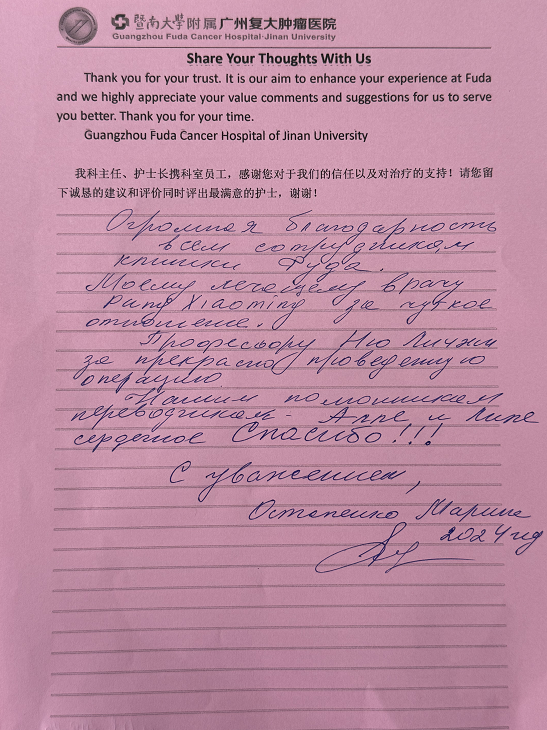 暨南大學附属广州复大肿瘤医院
Guangzhou Fuda Cancer Hospital·Jinan University
Share Your Thoughts With Us
Thank you for your trust. It is our aim to enhance your experience at Fuda
and we highly appreciate your value comments and suggestions for us to serve
you better. Thank you for your time.
Guangzhou Fuda Cancer Hospital of Jinan University
我科主任、护士长携科室员工，感谢您对于我们的信任以及对治疗的支持！请您留
下诚恳的建议和评价同时评出最满意的护士，谢谢！
Огромная благодарность
всем сотрудникам
клиники Фуда.
Моему лечащему врачу
Pang Xiaoming за чуткое
отношение.
Профессору Ню Личжи
за прекрасно проведенную
операцию
Нашим помощникам
переводчикам - Алле и Лине
сердечное Спасибо!!!
С уважением,
Остапенко Марина
2024 год